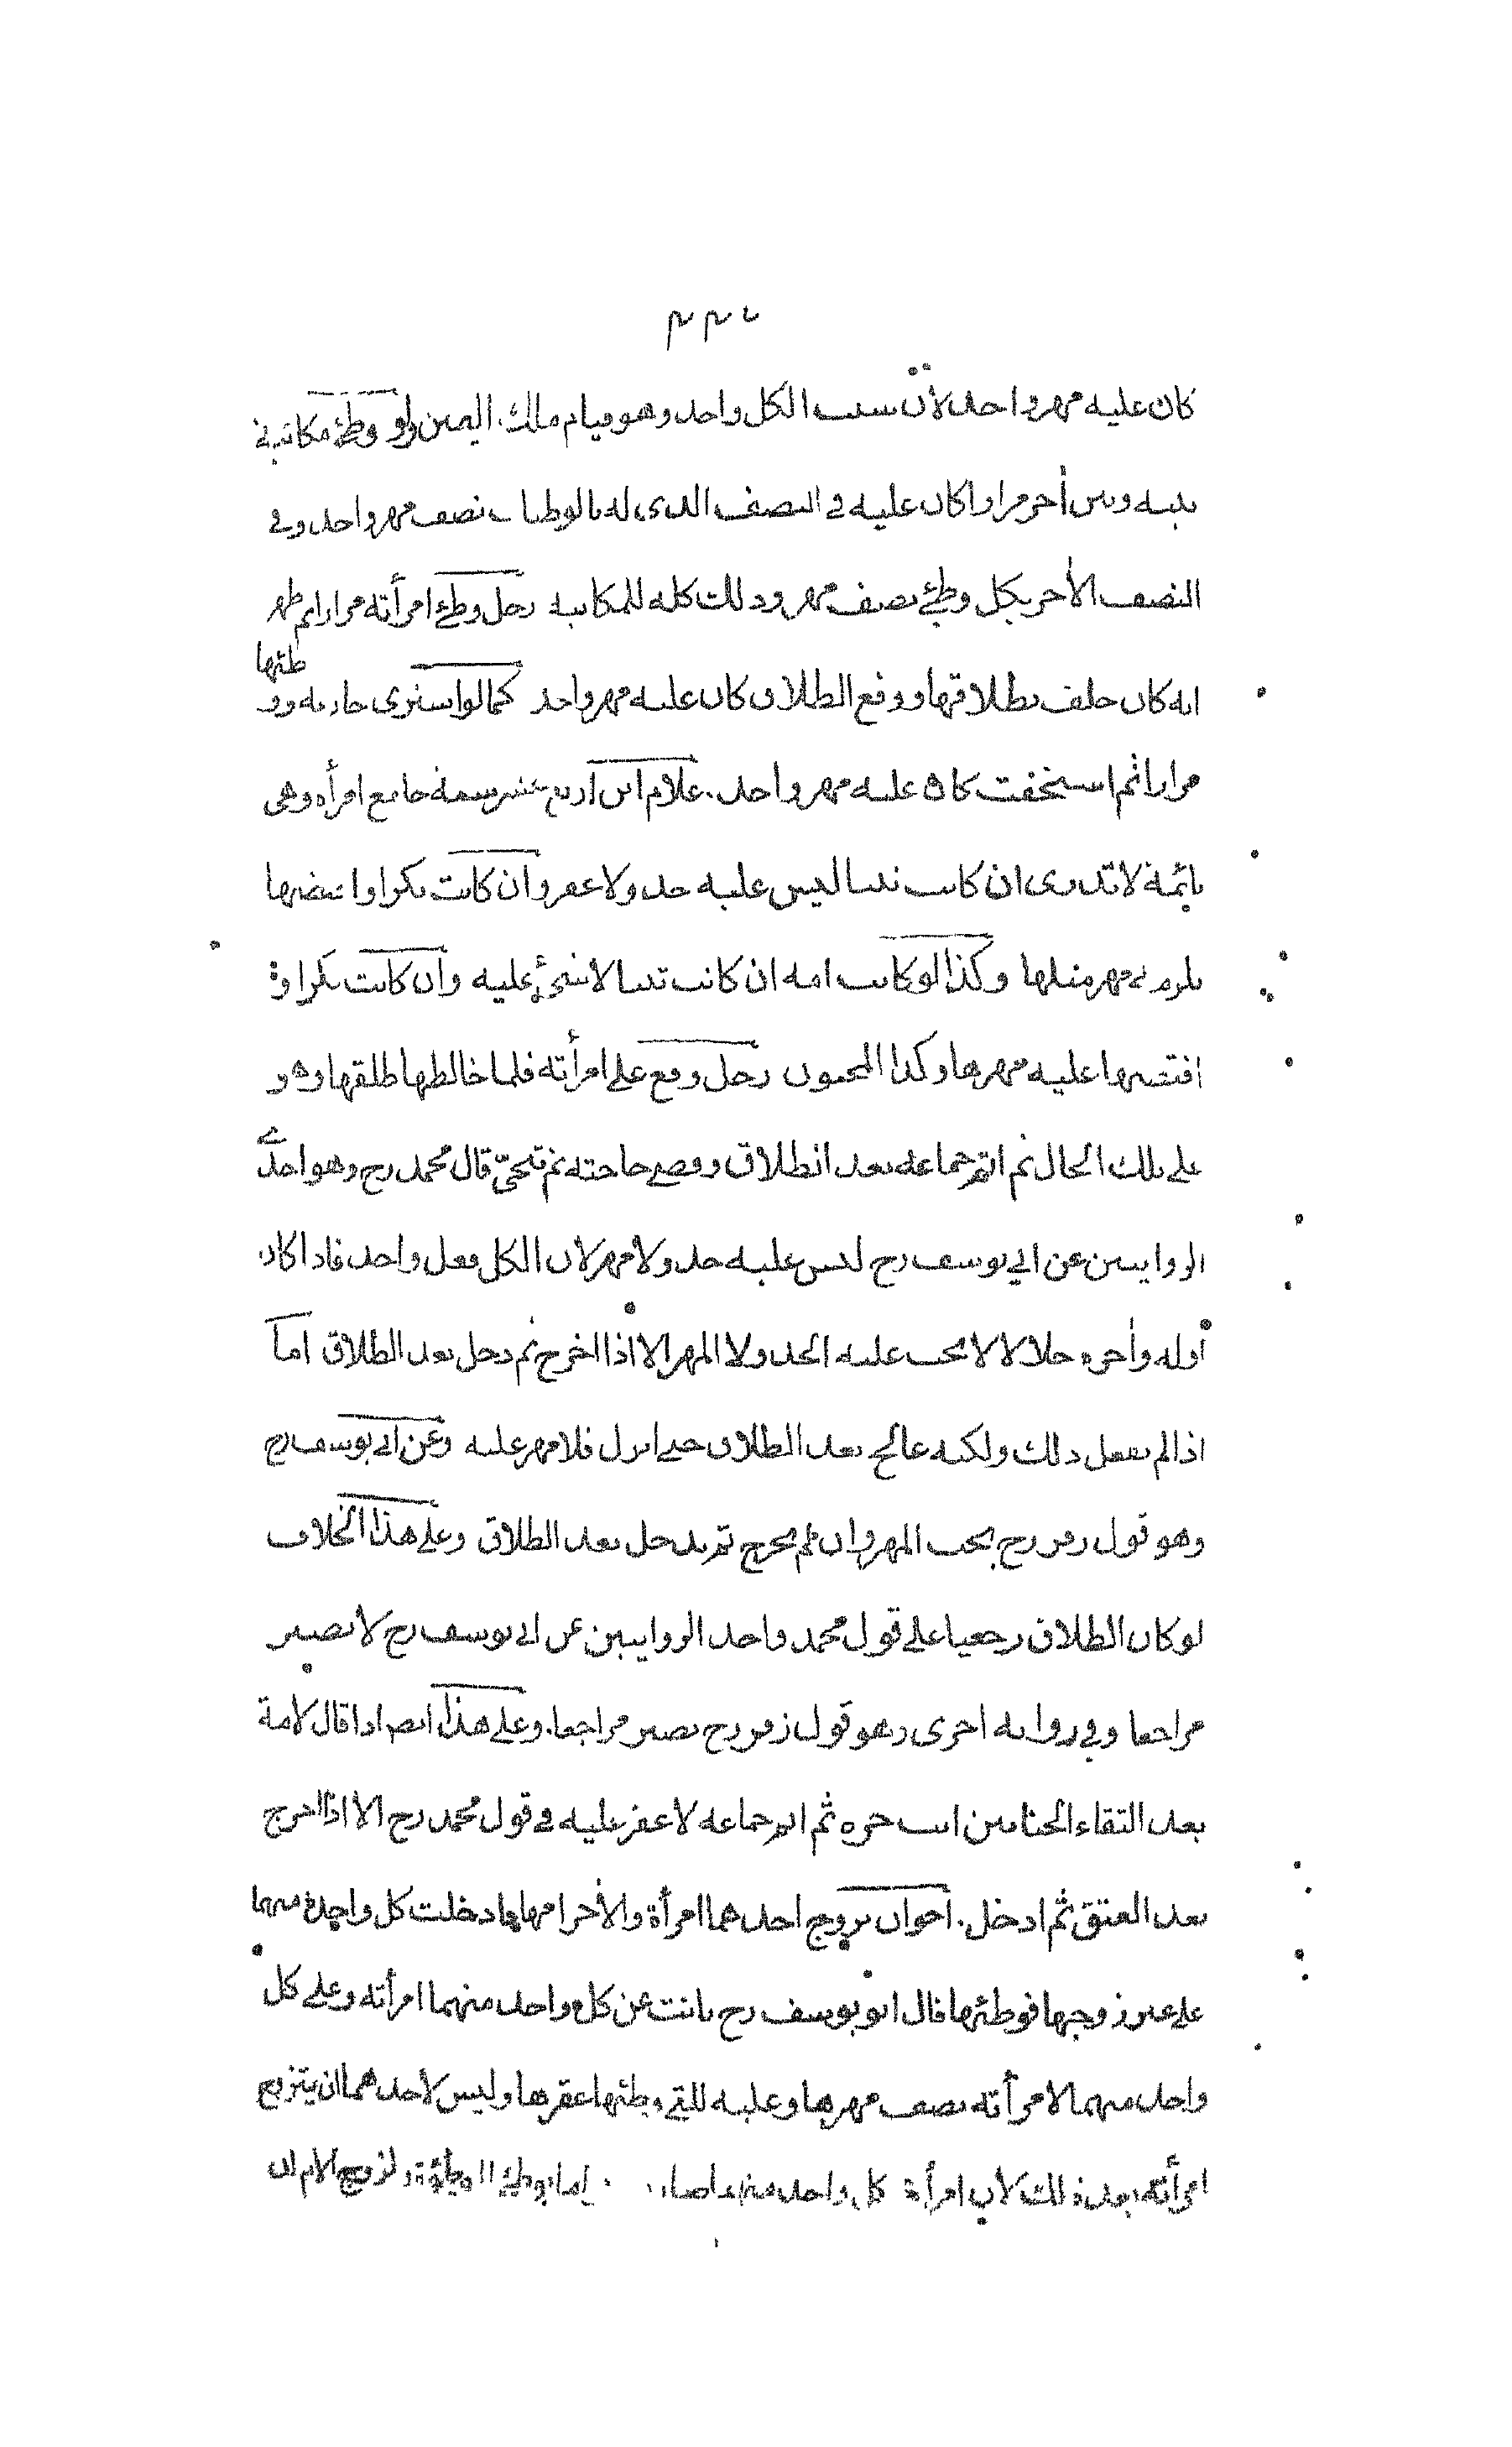 كان عليه مهر واحد لأن سبب الكل واحد وهو قيام ملك اليمين ولو وطئ مكاتبة
بينه وبين أخر مرارا كان عليه في النصف الذي له بالوطيات نصف مهر واحد وفي
النصف الأخر بكل وطئ نصف مهر وذلك كله للمكاتبة رجل وطئ امرأته مرارا ثم ظهر
انه كان حلف بطلاقها ووقع الطلاق كان عليه مهر واحد كما لو اشترى جارية ووطئها
مرارا ثم استحقت كان عليه مهر واحد . غلام ابن اربع عشر سنة جامع امرأة وهي
نائمة لا تدرى ان كانت ثيبا ليس عليه حد ولا عقر وان كانت بكرا وافتضها
يلزمه مهر مثلها وكذا لو كانت امة ان كانت ثيبا لا شئ عليه وان كانت بكرا و
افتضها عليه مهرها وكذا المجنون رجل وقع على امرأته فلما خالطها طلقها وهو
على تلك الحال ثم اتم جماعه بعد الطلاق وقضى حاجته ثم تنحى قال محمد رح وهو احدى
الروايتين عن ابي يوسف رح ليس عليه حد ولا مهر لان الكل فعل واحد فاذا كان
أوله وأخره حلالا لا يجب عليه الحد ولا المهر الا اذا اخرج ثم دخل بعد الطلاق اما
اذا لم يفعل ذلك ولكنه عالج بعد الطلاق حتى انزل فلا مهر عليه وعن ابي يوسف رح
وهو قول زفر رح يجب المهر وان لم يخرج ثم يدخل بعد الطلاق وعلى هذا الخلاف
لو كان الطلاق رجعيا على قول محمد واحد الروايتين عن ابي يوسف رح لا يصير
مراجعا وفي رواية اخرى وهو قول زفر رح يصير مراجعا . وعلى هذا ايضا اذا قال لامة
بعد التقاء الختانين انت حرة ثم اتم جماعه لا عقر عليه في قول محمد رح الا اذا اخرج
بعد العتق ثم ادخل . اخوان تزوج احدهما امرأة والأخر امها فادخلت كل واحدة منهما
على غير زوجها فوطئها قال ابو يوسف رح بانت عن كل واحد منهما امرأته وعلى كل
واحد منهما لامرأته نصف مهرها وعليه للتي وطئها عقرها وليس لاحدهما ان يتزوج
امرأته بعد ذلك لأن امرأة كل واحد منهما لزوج الام ان